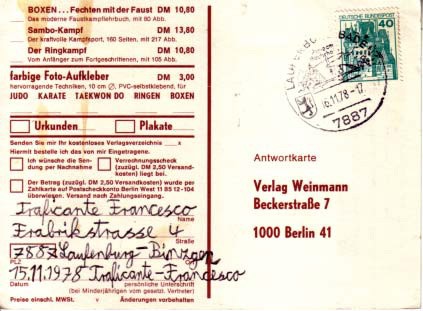 BOXEN...Fechten mit der Faust DM 10,80
Das moderne Faustkampflehrbuch, mit 80 Abb.
Sambo-Kampf DM 13,80
Der kraftvolle Kampfsport, 160 Seiten. mit 217 Abb.
Der Ringkampf DM 10,80
Vom Anfänger zum Fortgeschrittenen, mit 105 Abb.
farbige Foto-Aufkleber DM 3,00
hervorragende Techniken, 10 cm Ø, PVC-selbstklebend, für
JUDO KARATE TAEKWON DO RINGEN BOXEN
Urkunden Plakate
Senden Sie mir Ihr kostenloses Verlagsverzeichnis x
Hiermit bestelle ich das von mir Eingetragene.
Ich wünsche die Sendung per Nachnahme
Verrechnungsscheck (zuzügl. DM 2,50 Versandkosten) liegt bei.
Der Betrag (zuzügl. DM 2,50 Versandkosten) wurde per
Zahlkarte auf Postscheckkonto Berlin West 11 85 12-104
überwiesen. Versand nach Zahlungseingang.
Traficante Francesco
Frabrikstrasse 4
Straße
7887 Laufenburg-Binzgen
PLZ
15.11.1978 Traficante-Francesco
Datum persönliche Unterschrift
(bei Minderjährigen vom gesetzl. Vertreter)
Preise einschl. MWSt. v Änderungen vorbehalten
DEUTSCHE BUNDESPOST
40
LAUFENBURG BADEN
15.11.78-17
7887
Antwortkarte
Verlag Weinmann
Beckerstraße 7
1000 Berlin 41